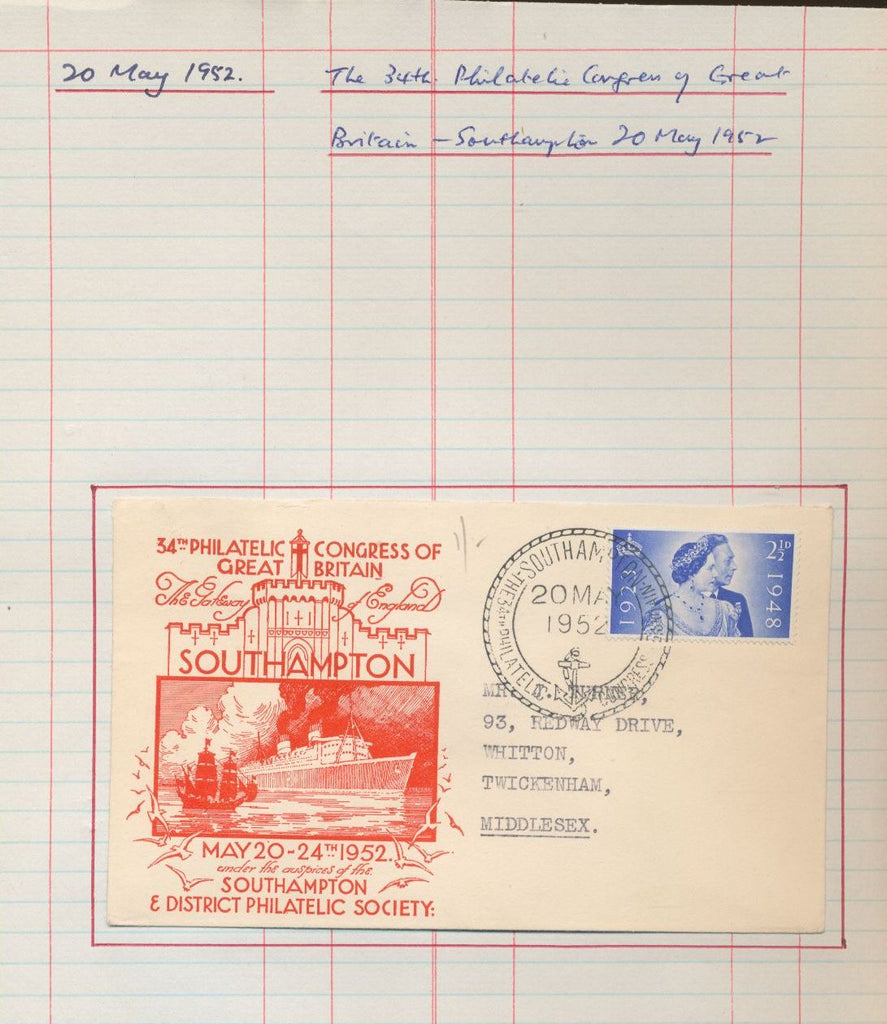 20 May 1952.
The 34th. Philatelic Congress of Great
Britain - Southampton 20 May 1952
34TH PHILATELIC CONGRESS OF
GREAT BRITAIN
The Gateway of England
SOUTHAMPTON
MAY 20-24TH 1952.
under the auspices of the
SOUTHAMPTON
& DISTRICT PHILATELIC SOCIETY:
SOUTHAMPTON
THE 34TH PHILATELIC CONGRESS
20 MAY
1952
1923
2½D
1948
MR. TURNER,
93, REDWAY DRIVE,
WHITTON,
TWICKENHAM,
MIDDLESEX.